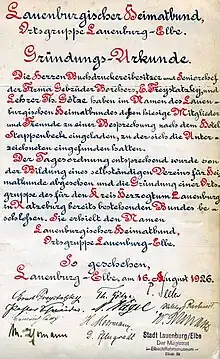 Lauenburgischer Heimatbund,
Ortsgruppe Lauenburg-Elbe.
Gründungs-Urkunde.
Die Herren Buchdruckereibesitzer und Seniorchef
der Firma Gebrüder Borchers,
Lehrer Th. Götze haben im Namen des Lauen-
burgischen Heimatbundes hiesige Mitglieder
und Freunde zu einer Besprechung nach dem Hotel
Stappenbeck eingeladen, zu der sich die Unter-
zeichneten eingefunden hatten.
Der Tagesordnung entsprechend wurde von
der Bildung eines selbständigen Vereins für Hei-
matkunde abgesehen und die Gründung einer Orts-
gruppe des für den Kreis Herzogtum Lauenburg
in Ratzeburg bereits bestehenden Bundes be-
schlossen. Sie erhielt den Namen
Lauenburgischer Heimatbund,
Ortsgruppe Lauenburg-Elbe.
So geschehen,
Lauenburg-Elbe, am 16. August 1926.
Th. Götze
Stadt Lauenburg/Elbe
Der Magistrat